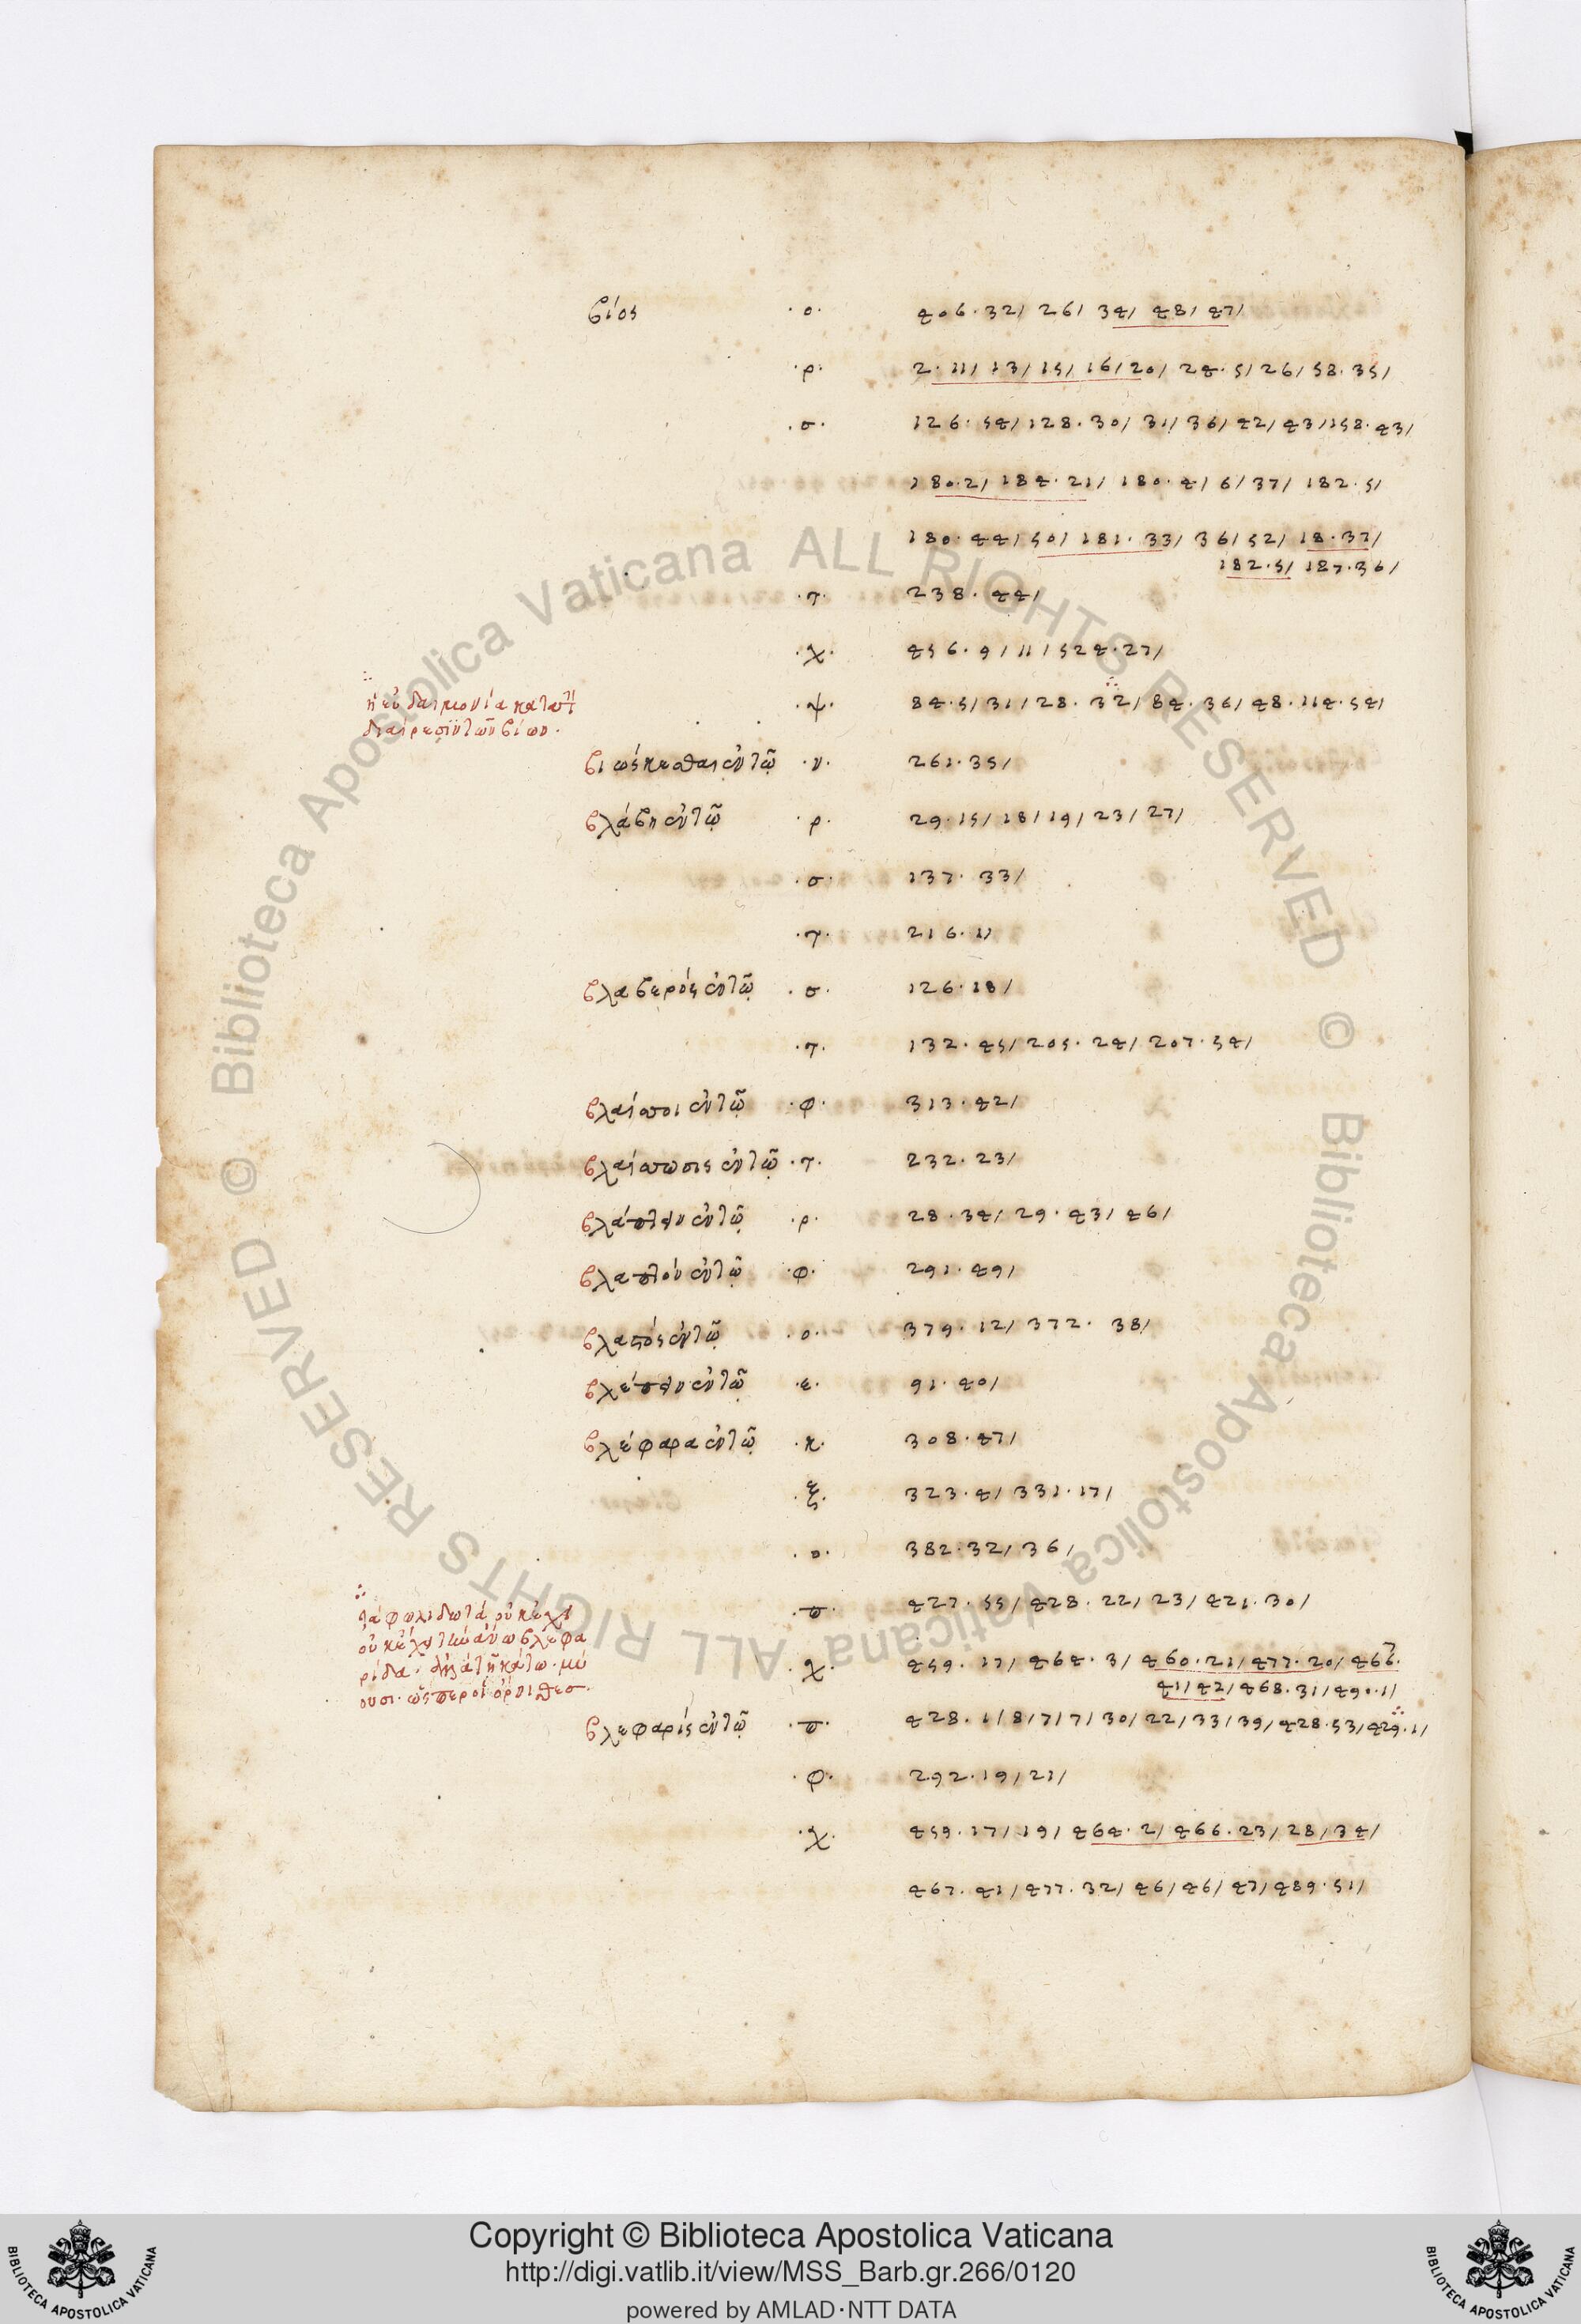 βίος ·ο· 406·32/ 26/ 34/ 48/ 47/
·ρ· 2·11/ 13/ 15/ 16/ 20/ 24·5/ 26/ 58·35/
·σ· 126·54/ 128·30/ 31/ 36/ 42/ 43/ 158·43/
180·2/ 184·21/ 180·4/ 6/ 37/ 182·5/
180·44/ 50/ 181·33/ 36/ 52/ 18·37/
182·5/ 187·36/
·τ· 238·44/
·χ· 456·9/ 11/ 524·27/
ἡ εὐδαιμονία κατὰ τὴν
διαίρεσιν τῶν βίων·
·ψ· 84·5/ 31/ 28·32/ 84·36/ 48·114·54/
βιώσκεσθαι ἐν τῷ ·ν· 261·35/
βλάβη ἐν τῷ ·ρ· 29·15/ 18/ 19/ 23/ 27/
·σ· 137·33/
·τ· 216·1/
βλαβερός ἐν τῷ ·σ· 126·18/
·τ· 132·45/ 205·24/ 207·54/
βλαίσοι ἐν τῷ ·φ· 313·42/
βλαίσωσις ἐν τῷ ·τ· 232·23/
βλάπτειν ἐν τῷ ·ρ· 28·34/ 29·43/ 46/
βλαπτόν ἐν τῷ ·φ· 291·49/
βλαστός ἐν τῷ ·ο· 379·12/ 372·38/
βλέπειν ἐν τῷ ·ε· 91·40/
βλέφαρα ἐν τῷ ·κ· 308·47/
·ξ· 323·4/ 331·17/
·ο· 382·32/ 36/
·π· 427·55/ 428·22/ 23/ 421·30/
τὰ φωλιδωτὰ οὐκ ἔχει
οὐκ ἔχει τὴν ἄνω βλεφα
ρίδα· ἀλλὰ τῇ κάτω· μύ
ουσι· ὥσπερ οἱ ὄρνιθες·
·χ· 459·17/ 464·3/ 460·21/ 477·20/ 466·
41/ 42/ 468·31/ 490·1/
βλεφαρίς ἐν τῷ ·π· 428·1/ 8/ 7/ 7/ 30/ 22/ 33/ 39/ 428·53/ 429·1/
·φ· 292·19/ 21/
·χ· 459·17/ 19/ 464·2/ 466·23/ 28/ 34/
467·41/ 477·32/ 46/ 46/ 47/ 489·51/
© Biblioteca Apostolica Vaticana ALL RIGHTS RESERVED © Biblioteca Apostolica Vaticana ALL RIGHTS RESERVED
Copyright © Biblioteca Apostolica Vaticana
http://digi.vatlib.it/view/MSS_Barb.gr.266/0120
powered by AMLAD·NTT DATA
BIBLIOTECA APOSTOLICA VATICANA
BIBLIOTECA APOSTOLICA VATICANA